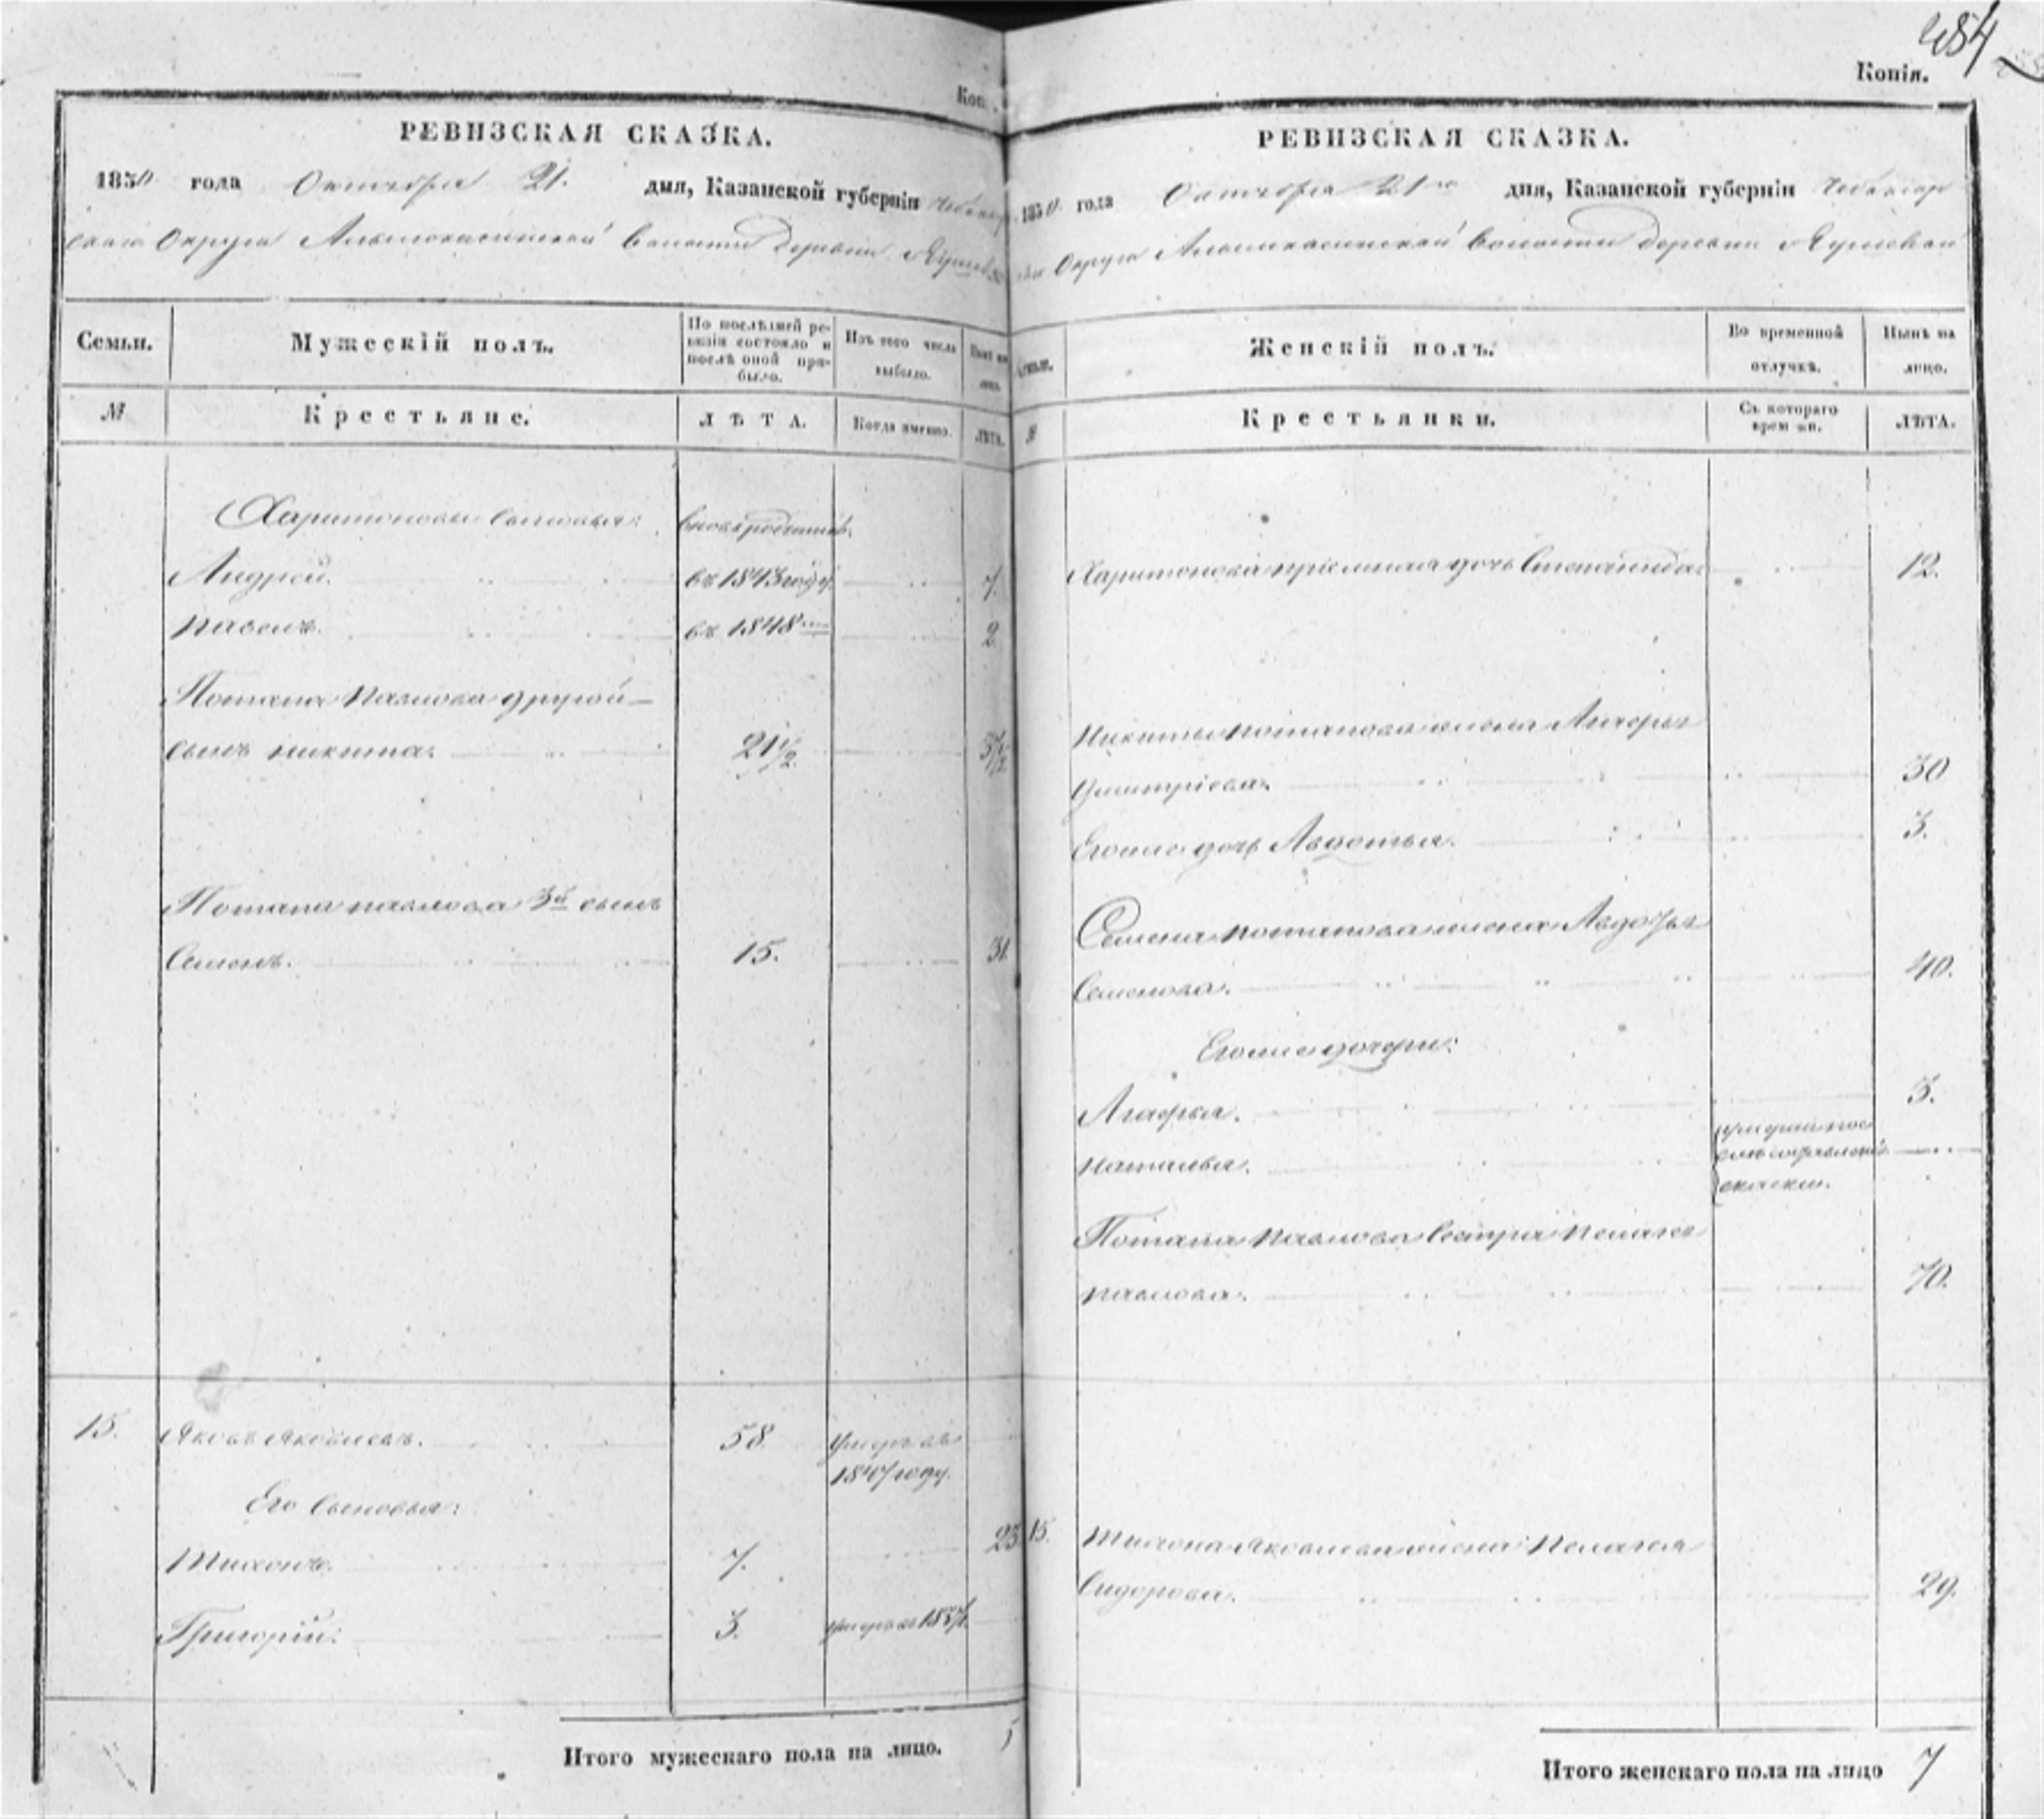 484
Копія.
РЕВИЗСКАЯ СКАЗКА.
1850 года Октября 21. дня, Казанской губерніи Чебоксар
скаго Округа Алымкасинской волости деревни Яушевой
Семьи.
Мужескій полъ.
По послѣдней ре-
визіи состояло и
послѣ оной при-
было.
Изъ того числа
выбыло.
Нынѣ на
лицо.
№
Крестьяне.
ЛѢТА.
Когда именно.
ЛѢТА.
Харитоновы сыновья: вновьрожденные.
Андрей. въ 1843 году. 7.
Павелъ. въ 1848 2
Потапа Павлова другой
сынъ Никита. 21 1/2
Потапа Павлова 3й сынъ
Семенъ. 15. 31.
15. Яковъ Яковлевъ. 58 умеръ въ
1847 году.
Его сыновья:
Тихонъ. 7. 23
Григорій. 3. умеръ въ
Итого мужескаго пола на лицо. 5
РЕВИЗСКАЯ СКАЗКА.
1850 года Октября 21го дня, Казанской губерніи Чебоксар
Округа Алымкасинской волости деревни Яушевой
Женскій полъ.
Во временной
отлучкѣ.
Нынѣ на
лицо.
№
Крестьянки.
Съ котораго
времени.
ЛѢТА.
Харитонова пріемная дочь Степанида. 12.
Никиты Потапова жена Агафья
Дмитріева. 30
Егоже дочь Авдотья. 3.
Семена Потапова жена Авдотья
Семенова. 40.
Егоже дочери:
Агафья. 3.
Наталья.
Потапа Павлова сестра Пелагея
Павлова. 70.
15. Тихона Яковлева жена Пелагея
Сидорова. 29.
Итого женскаго пола на лицо 7